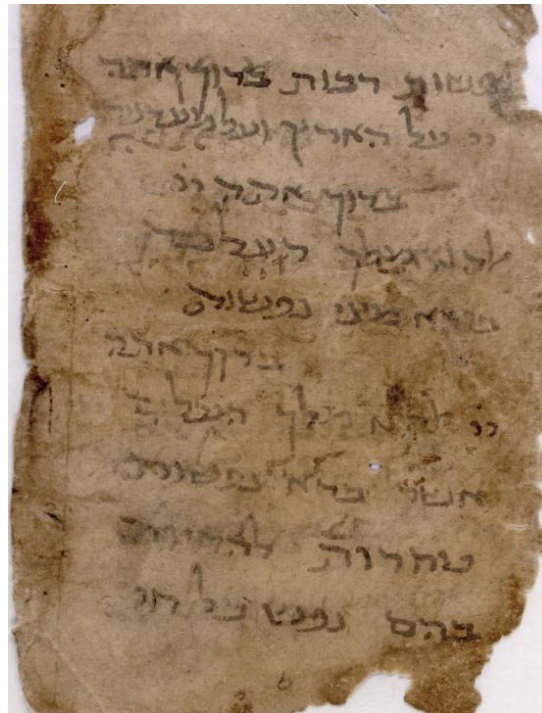 נפשות רבות ברוך אתה
יי על הארץ ועל
ברוך אתה יי
מלך העולם
בורא מיני נפשות
ברוך אתה
יי מלך העולם
אשר ברא נפשות
טהרות להחיות
בהם נפש כל חי